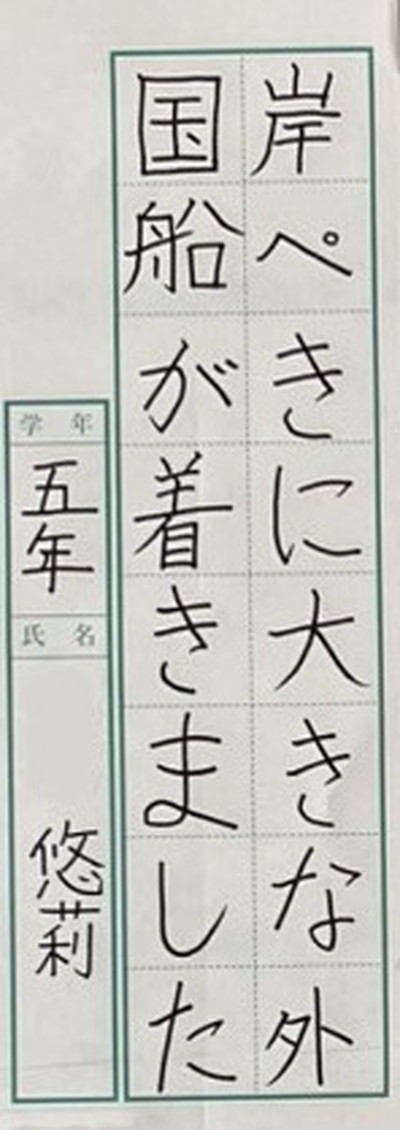 岸ぺきに大きな外
国船が着きました
学年
五年
氏名
悠莉